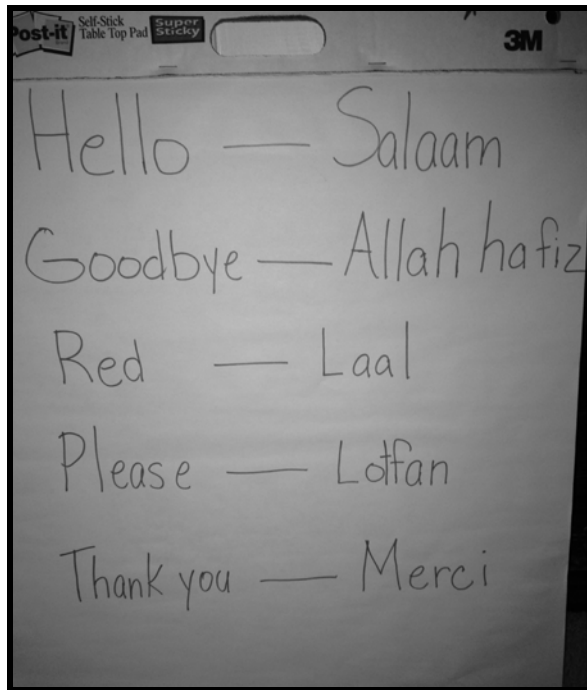 Post-it
Self-Stick
Table Top Pad
Super
Sticky
3M
Hello — Salaam
Goodbye — Allah hafiz
Red — Laal
Please — Lotfan
Thank you — Merci